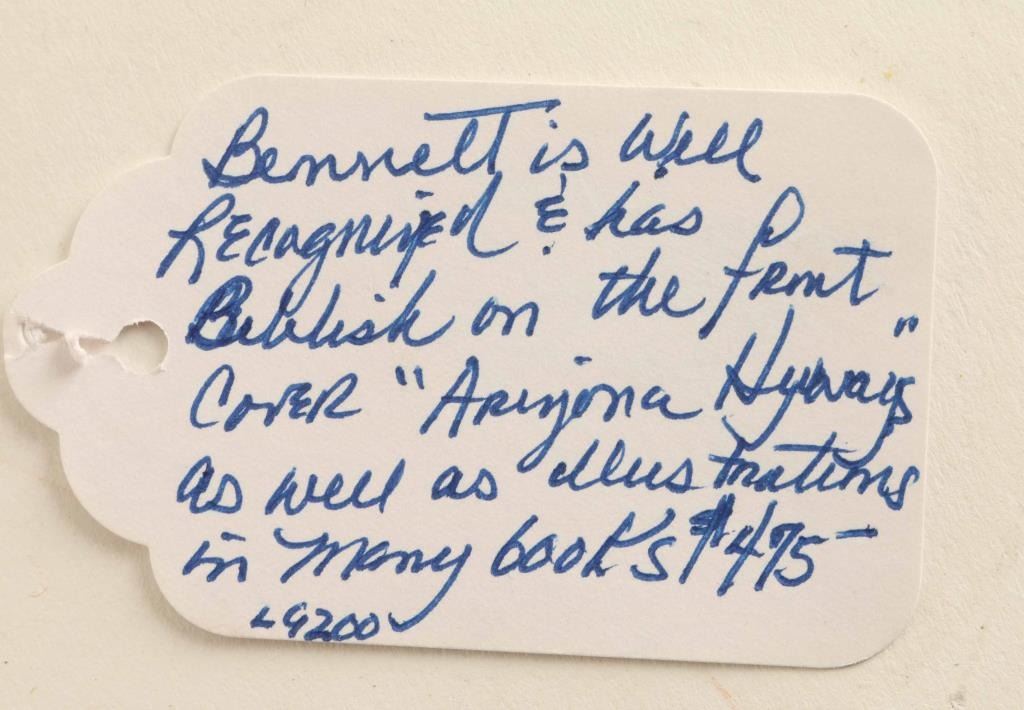 Bennett is Well
Recognized & has
Publish on the front
Cover "Arizona Hyways"
as well as illustrations
in many books $475-
LG200